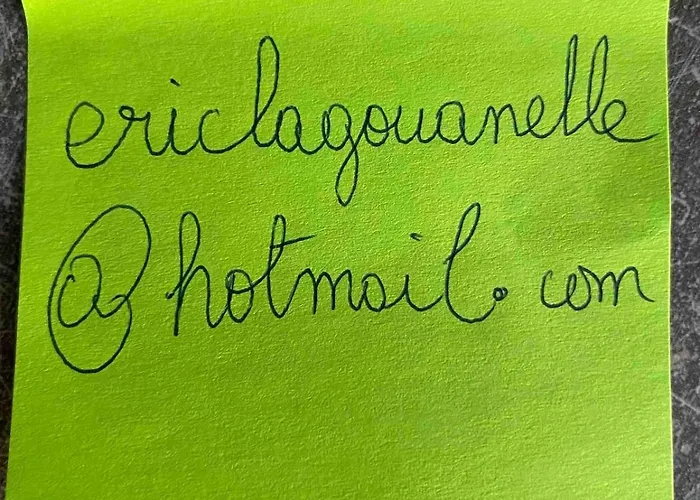 ericlagouanelle
@hotmail.com